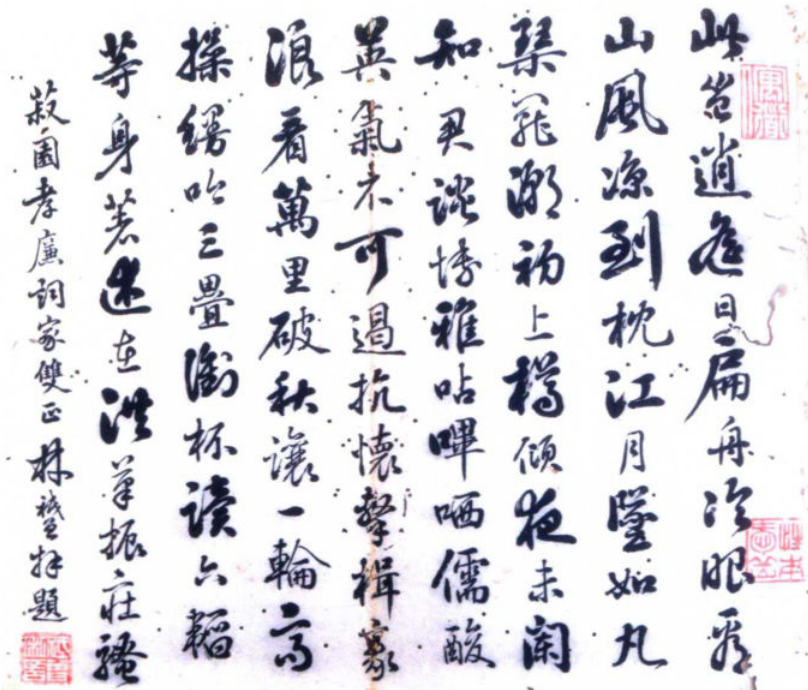 此豈逍遙日扁舟冷眼看
山風涼到枕江月墮如丸
琴罷潮初上樽傾夜未闌
知君談博雅呫嗶哂儒酸
英氣不可遏抗懷擊楫豪
浪看萬里破秋讓一輪高
操縵吟三疊銜杯讀六韜
等身著述在洪筆振莊騷
菽園孝廉詞家雙正 林 拜題